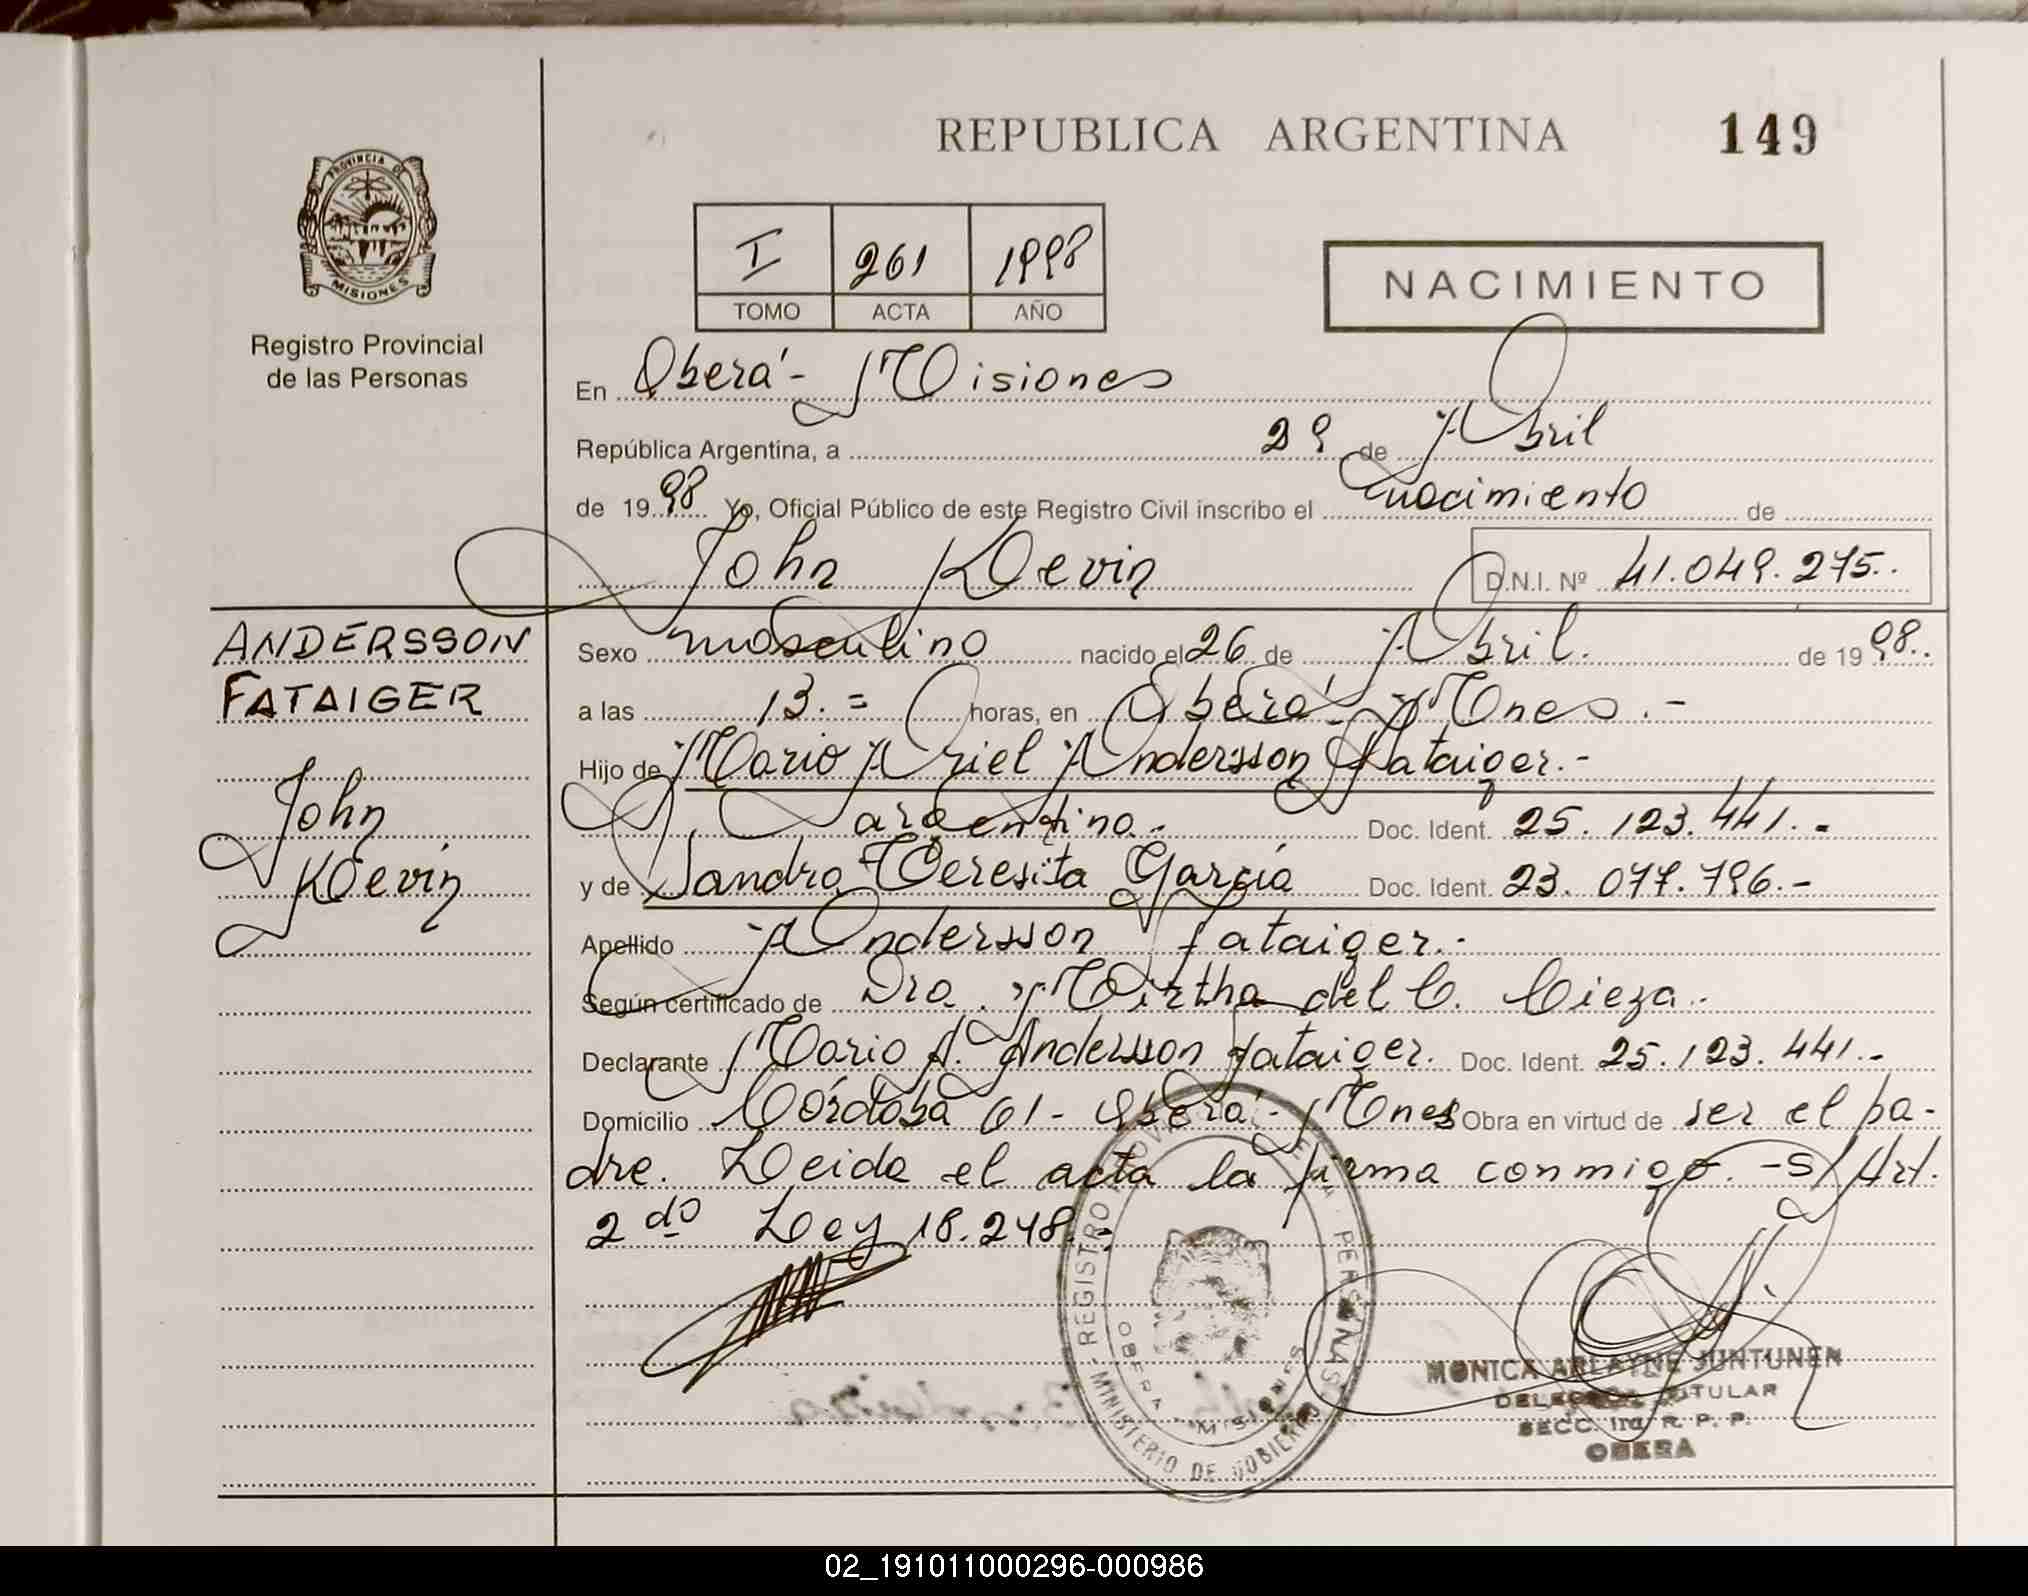 REPUBLICA ARGENTINA
149
PROVINCIA DE
MISIONES
Registro Provincial
de las Personas
I 261 1998
TOMO ACTA AÑO
NACIMIENTO
En Oberá - Misiones
República Argentina, a 29 de Abril
de 1998 Yo, Oficial Público de este Registro Civil inscribo el nacimiento de
John Kevin D.N.I. Nº 41.049.275.
ANDERSSON
FATAIGER
John
Kevin
Sexo masculino nacido el 26 de Abril. de 1998.
a las 13.= horas, en Oberá - Mnes.-
Hijo de Mario Ariel Andersson Fataiger.-
argentino.- Doc. Ident. 25.123.441.-
y de Sandra Teresita García Doc. Ident. 23.077.796.-
Apellido Andersson Fataiger.-
Según certificado de Dra. Mirtha del C. Cieza.-
Declarante Mario A. Andersson Fataiger. Doc. Ident. 25.123.441.-
Domicilio Córdoba 61 - Oberá - Mnes Obra en virtud de ser el pa-
dre. Leida el acta la firma conmigo. - S/ Art.
2do Ley 18.248.-
REGISTRO PROVINCIAL DE LAS PERSONAS
MINISTERIO DE GOBIERNO
OBERA - MISIONES
MONICA ARLAYNE JUNTUNEN
DELEGADA TITULAR
SECC. 1ra R. P. P.
OBERA
02_191011000296-000986